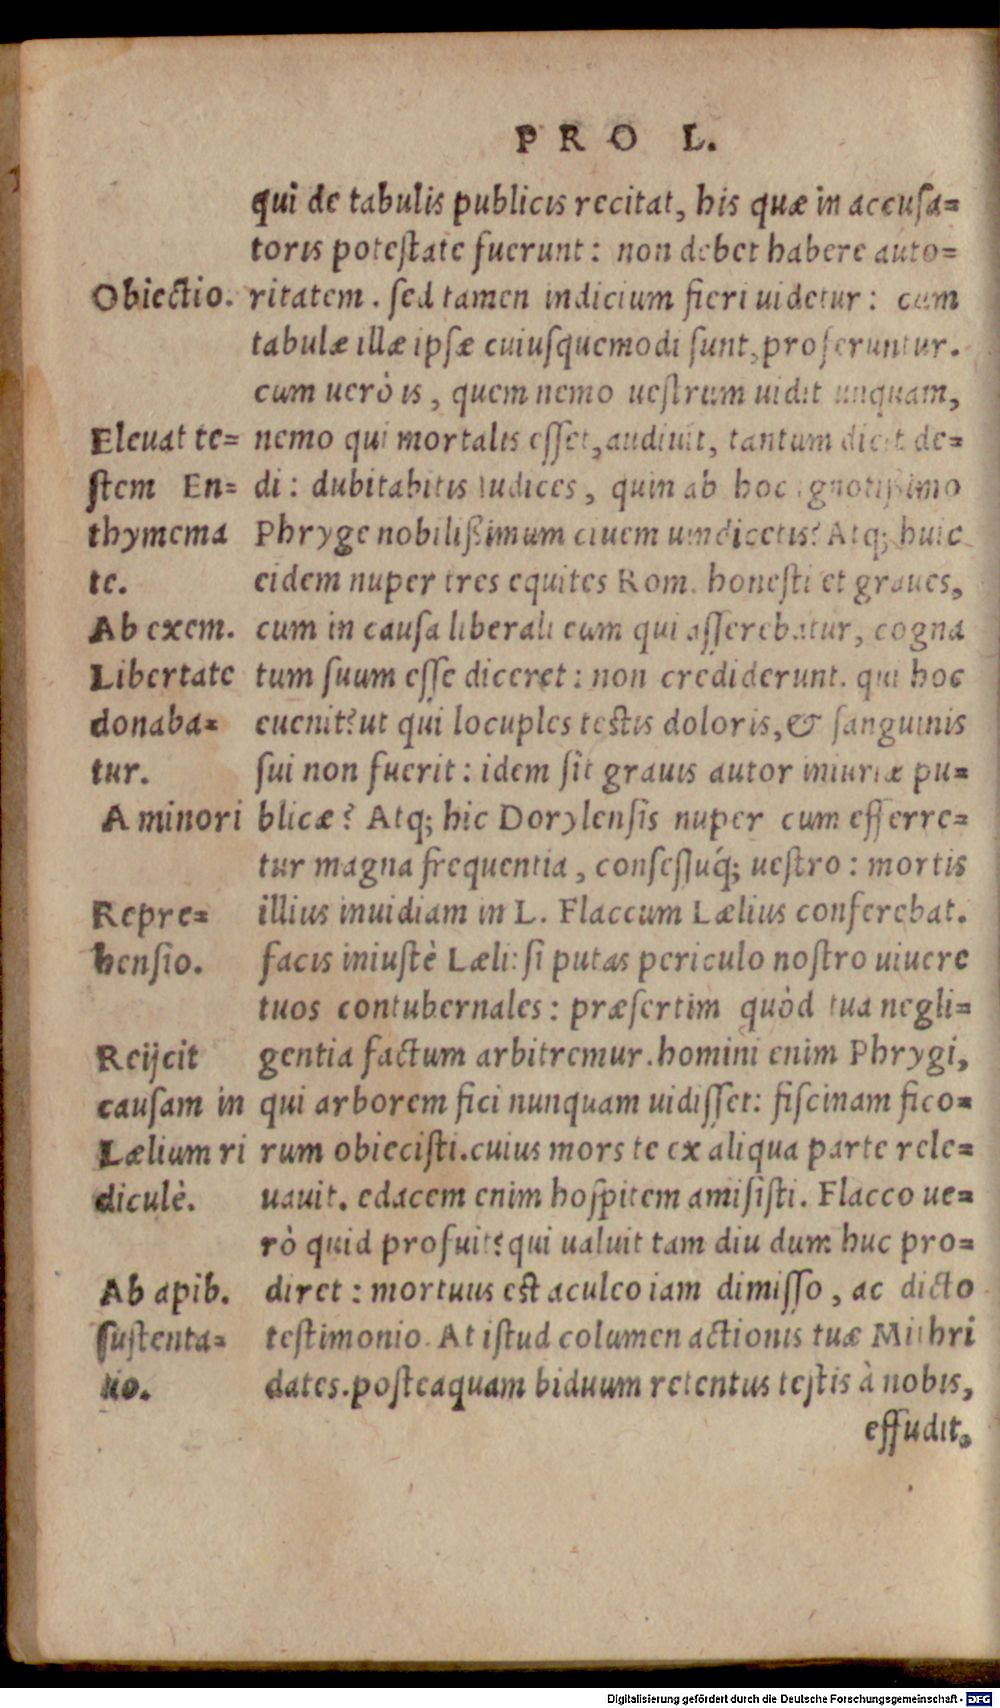 PRO L.
qui de tabulis publicis recitat, his quæ in accusa=
toris potestate fuerunt: non debet habere auto=
Obiectio.
ritatem. sed tamen indicium fieri uidetur: cum
tabulæ illæ ipsæ cuiusquemodi sunt, proferuntur.
cum uerò is, quem nemo uestrum uidit unquam,
Eleuat te=
nemo qui mortalis esset, audiuit, tantum dicit de=
stem En=
di: dubitabitis Iudices, quin ab hoc ignotißimo
thymema
Phryge nobilißimum ciuem uindicetis? Atq; huic
te.
eidem nuper tres equites Rom. honesti et graues,
Ab exem.
cum in causa liberali eum qui asserebatur, cogna
Libertate
tum suum esse diceret: non crediderunt. qui hoc
donaba=
euenit? ut qui locuples testis doloris, & sanguinis
tur.
sui non fuerit: idem sit grauis autor iniuriæ pu=
A minori
blicæ? Atq; hic Dorylensis nuper cum efferre=
tur magna frequentia, consessúq; uestro: mortis
Repre=
illius inuidiam in L. Flaccum Lælius conferebat.
hensio.
facis iniustè Læli: si putas periculo nostro uiuere
tuos contubernales: præsertim quòd tua negli=
Reijcit
gentia factum arbitremur. homini enim Phrygi,
causam in
qui arborem fici nunquam uidisset: fiscinam fico=
Lælium ri
rum obiecisti. cuius mors te ex aliqua parte rele=
diculè.
uauit. edacem enim hospitem amisisti. Flacco ue=
rò quid profuit? qui ualuit tam diu dum huc pro=
Ab apib.
diret: mortuus est aculeo iam dimisso, ac dicto
sustenta=
testimonio. At istud columen actionis tuæ Mithri
tio.
dates. posteaquam biduum retentus testis à nobis,
effudit,
Digitalisierung gefördert durch die Deutsche Forschungsgemeinschaft - DFG